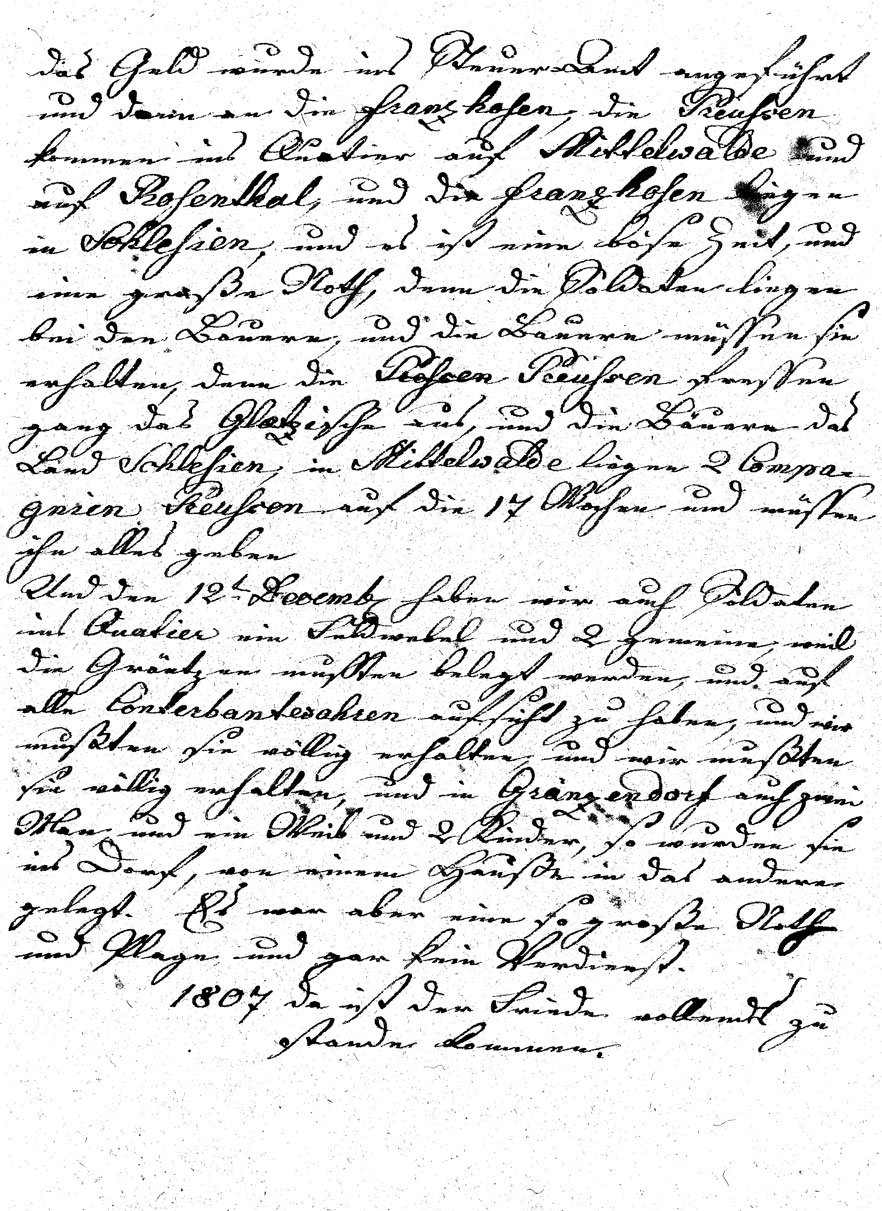 das Geld wurde ins Steuer-Amt angeführt
und dann an die Franzhosen, die Preussen
kommen ins Quatier auf Mittelwalde und
auf Rosenthal, und die Franzhosen liegen
in Schlesien, und es ist eine böse Zeit, und
eine große Noth, denn die Soldaten liegen
bei den Bauern, und die Bauern müssen sie
erhalten, denn die Preussen fressen
ganz das Glatzische aus, und die Bauern das
Land Schlesien, in Mittelwalde liegen 2 Compa-
gnien Preussen auf die 17 Wochen und müssen
ihn alles geben
Und den 12t Decemb haben wir auch Soldaten
ins Quatier ein Feldwebel und 2 gemeine, weil
die Gräntzen mussten belegt werden, und auf
alle Conterbantesahsen aufsicht zu haben, und wir
mußten sie völlig erhalten, und wir mußten
sie völlig erhalten, und in Gränzendorf auch zwei
Man und ein Weib und 2 Kinder, so wurden sie
ins Dorf, von einem Hauße in das andere
gelegt. Es war aber eine so große Noth
und Plage und gar kein Verdienst.
1807 da ist der Friede vollends zu
stande kommen.